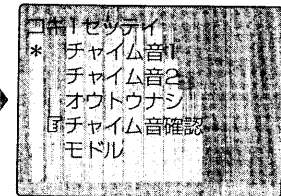 コキ1セッテイ
* チャイム音1
チャイム音2
オウトウナシ
☞チャイム音確認
モドル